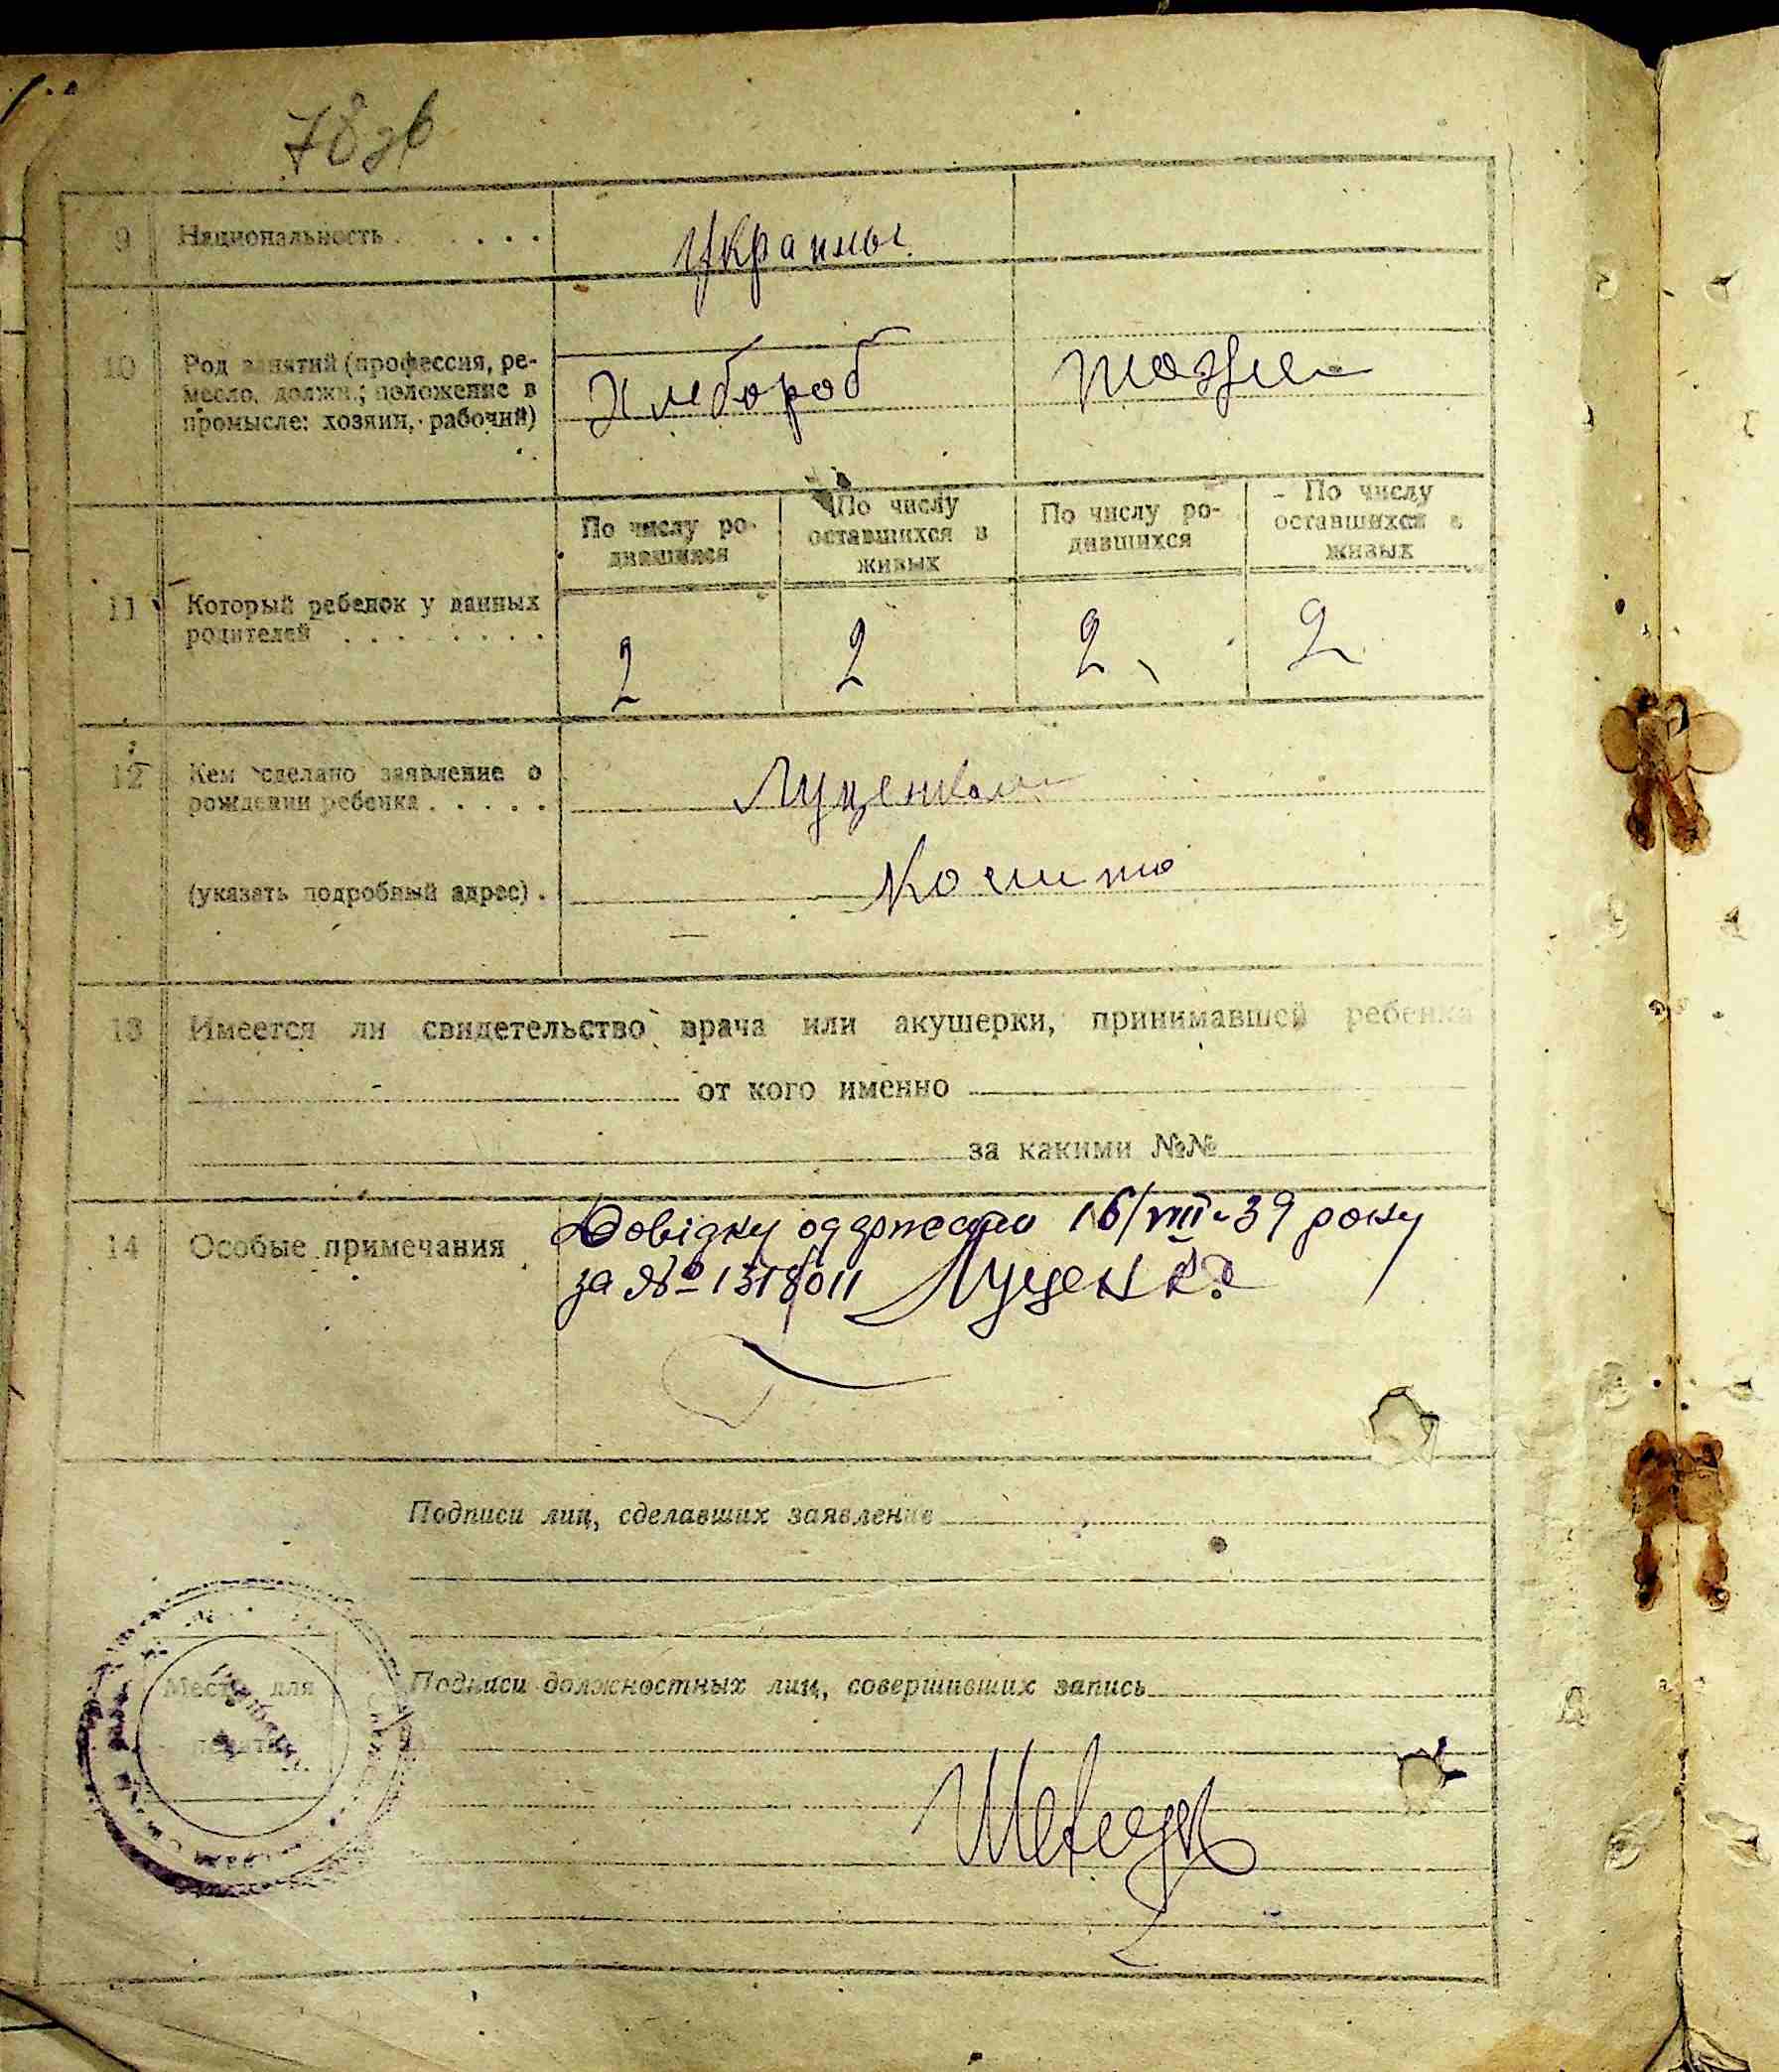 78зв
9 Национальность . . . . . .
Украины
10 Род занятий (профессия, ре-
месло, должн.; положение в
промысле: хозяин, рабочий)
Хлебороб
тоже
11 Который ребенок у данных
родителей . . . . . . . .
По числу ро-
дившихся
По числу
оставшихся в
живых
По числу ро-
дившихся
По числу
оставшихся в
живых
2 2 2 2
12 Кем сделано заявление о
рождении ребенка . . . . .
(указать подробный адрес) .
13 Имеется ли свидетельство врача или акушерки, принимавшей ребенка
от кого именно
за какими №№
14 Особые примечания
Довідку одержано 16/VIII-39 року
за № Луценко
Подписи лиц, сделавших заявление
Место для
печати
Подписи должностных лиц, совершивших запись